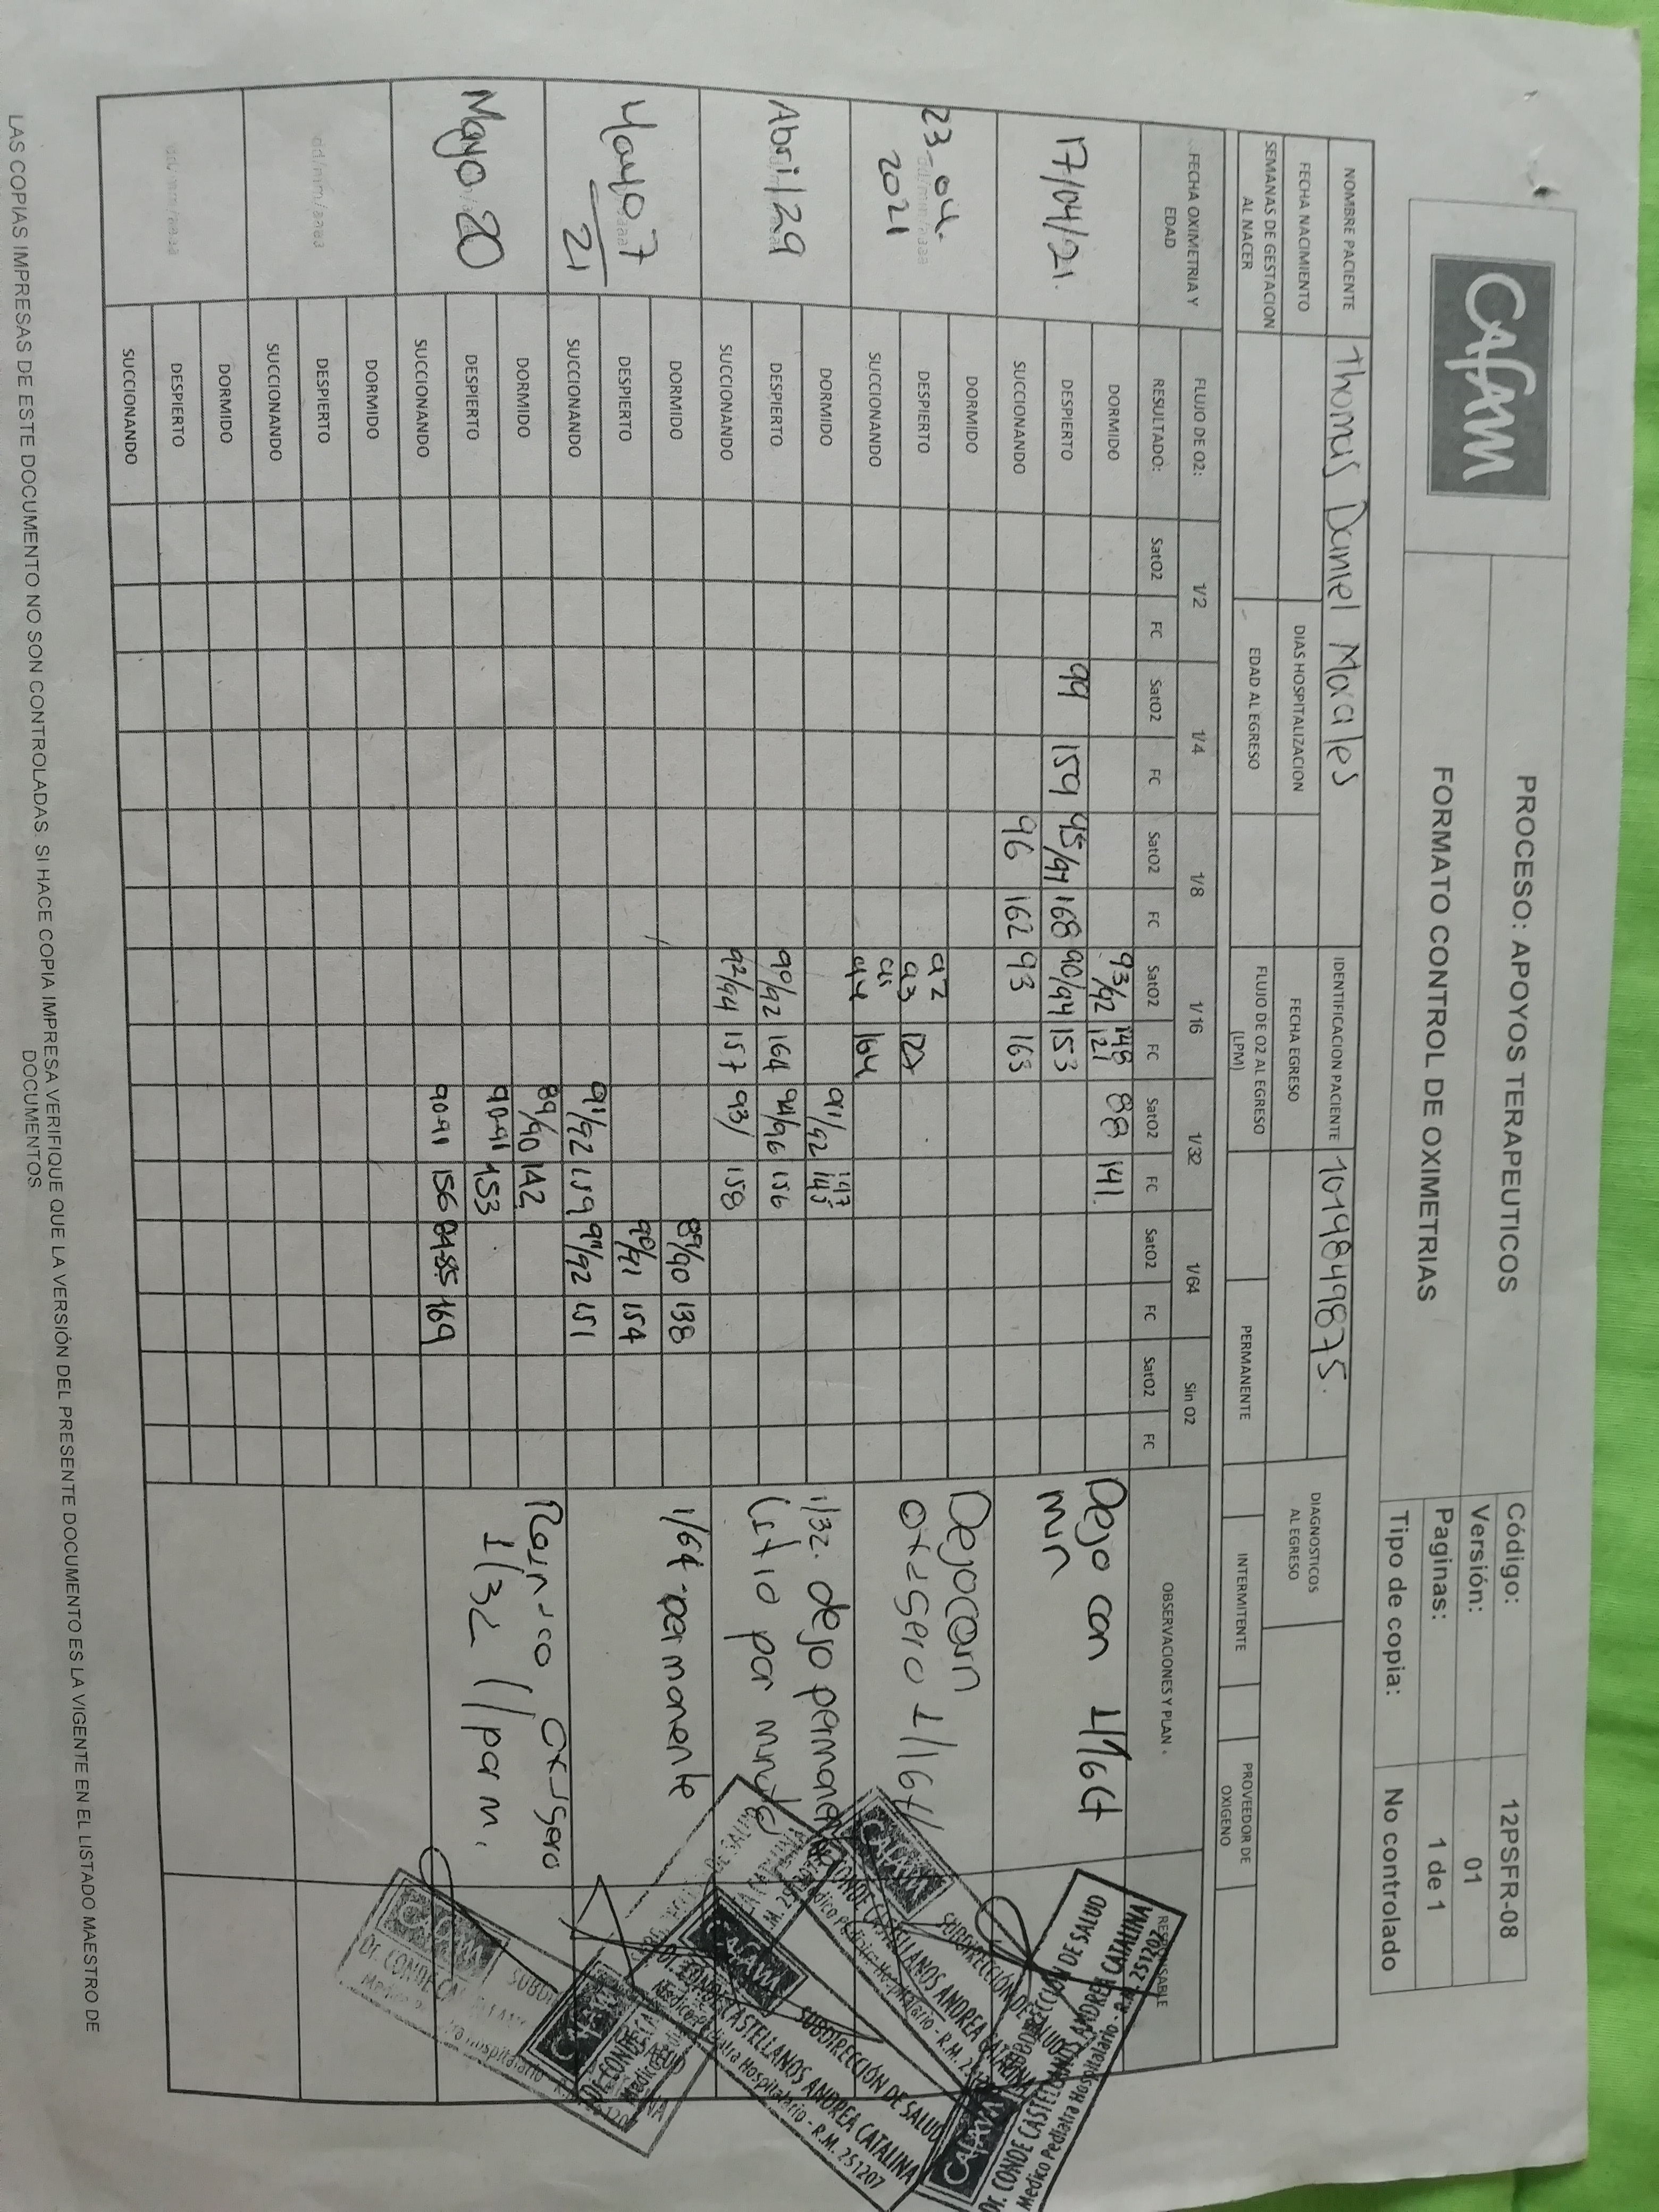 Cafam
PROCESO: APOYOS TERAPEUTICOS
FORMATO CONTROL DE OXIMETRIAS
Código: 12PSFR-08
Versión: 01
Paginas: 1 de 1
Tipo de copia: No controlado
NOMBRE PACIENTE Thomas Daniel IDENTIFICACION PACIENTE 1019849875.
FECHA NACIMIENTO DIAS HOSPITALIZACION FECHA EGRESO DIAGNOSTICOS AL EGRESO
SEMANAS DE GESTACION AL NACER EDAD AL EGRESO FLUJO DE O2 AL EGRESO (LPM) PERMANENTE INTERMITENTE PROVEEDOR DE OXIGENO
FECHA OXIMETRIA Y EDAD FLUJO DE O2: 1/2 1/4 1/8 1/16 1/32 1/64 Sin O2 OBSERVACIONES Y PLAN RESPONSABLE
RESULTADO: SatO2 FC SatO2 FC SatO2 FC SatO2 FC SatO2 FC SatO2 FC SatO2 FC
17/04/21.
DORMIDO 93/92 148 121 88 141.
DESPIERTO 99 159 95/97 168 90/94 153
SUCCIONANDO 96 162 93 163
Dejo con 1/16
min
23-04-
2021
DORMIDO
DESPIERTO 92 93
SUCCIONANDO 91 94 164
Dejo con
1/16
Abril 29
DORMIDO 91/92 147 145
DESPIERTO 90/92 164 94/96 156
SUCCIONANDO 92/94 157 93/ 158
1/32. dejo permanente
por minuto
Mayo 7
21
DORMIDO 89/90 138
DESPIERTO 90/91 154
SUCCIONANDO 91/92 159 91/92 151
1/64 permanente
Mayo 20
DORMIDO 89/90 142
DESPIERTO 90-91 153
SUCCIONANDO 90-91 156 84-85 169
Reinicio
1/32 l/por m.
dd/mm/aaaa
DORMIDO
DESPIERTO
SUCCIONANDO
dd/mm/aaaa
DORMIDO
DESPIERTO
SUCCIONANDO
CAFAM
SUBDIRECCIÓN DE SALUD
Dr. CONDE CASTELLANOS ANDREA CATALINA
Medico Pediatra Hospitalario - R.M. 251207
CAFAM
SUBDIRECCIÓN DE SALUD
CONDE CASTELLANOS ANDREA CATALINA
CAFAM
SUBDIRECCIÓN DE SALUD
Dr. CONDE CASTELLANOS ANDREA CATALINA
Medico Pediatra Hospitalario - R.M. 251207
CAFAM
Dr. CONDE
CAFAM
LAS COPIAS IMPRESAS DE ESTE DOCUMENTO NO SON CONTROLADAS. SI HACE COPIA IMPRESA VERIFIQUE QUE LA VERSIÓN DEL PRESENTE DOCUMENTO ES LA VIGENTE EN EL LISTADO MAESTRO DE
DOCUMENTOS